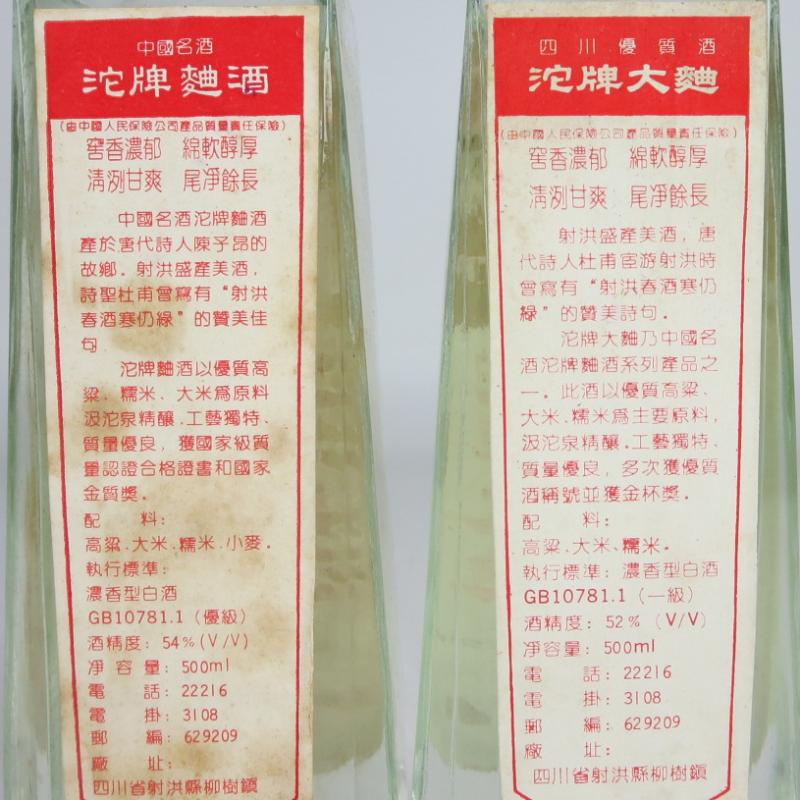 中國名酒
沱牌麯酒
(由中國人民保險公司產品質量責任保險)
窖香濃郁 綿軟醇厚
清洌甘爽 尾凈餘長
中國名酒沱牌麯酒
產於唐代詩人陳子昂的
故鄉．射洪盛產美酒，
詩聖杜甫曾寫有“射洪
春酒寒仍綠”的贊美佳
句
沱牌麯酒以優質高
粱、糯米、大米爲原料
汲沱泉精釀．工藝獨特、
質量優良，獲國家級質
量認證合格證書和國家
金質獎．
配 料：
高粱．大米．糯米．小麥．
執行標準：
濃香型白酒
GB10781.1（優級）
酒精度：54%(V/V)
凈容量：500ml
電 話：22216
電 掛：3108
郵 編：629209
廠 址：
四川省射洪縣柳樹鎮
四川優質酒
沱牌大麯
(由中國人民保險公司產品質量責任保險)
窖香濃郁 綿軟醇厚
清洌甘爽 尾凈餘長
射洪盛產美酒，唐
代詩人杜甫宦游射洪時
曾寫有“射洪春酒寒仍
綠”的贊美詩句．
沱牌大麯乃中國名
酒沱牌麯酒系列產品之
一．此酒以優質高粱、
大米、糯米爲主要原料，
汲沱泉精釀．工藝獨特、
質量優良，多次獲優質
酒稱號並獲金杯獎．
配 料：
高粱．大米．糯米．
執行標準：濃香型白酒
GB10781.1（一級）
酒精度：52%（V/V）
凈容量：500ml
電 話：22216
電 掛：3108
郵 編：629209
廠 址：
四川省射洪縣柳樹鎮